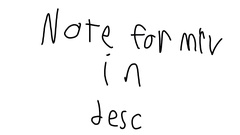 Note for mrv
in
desc